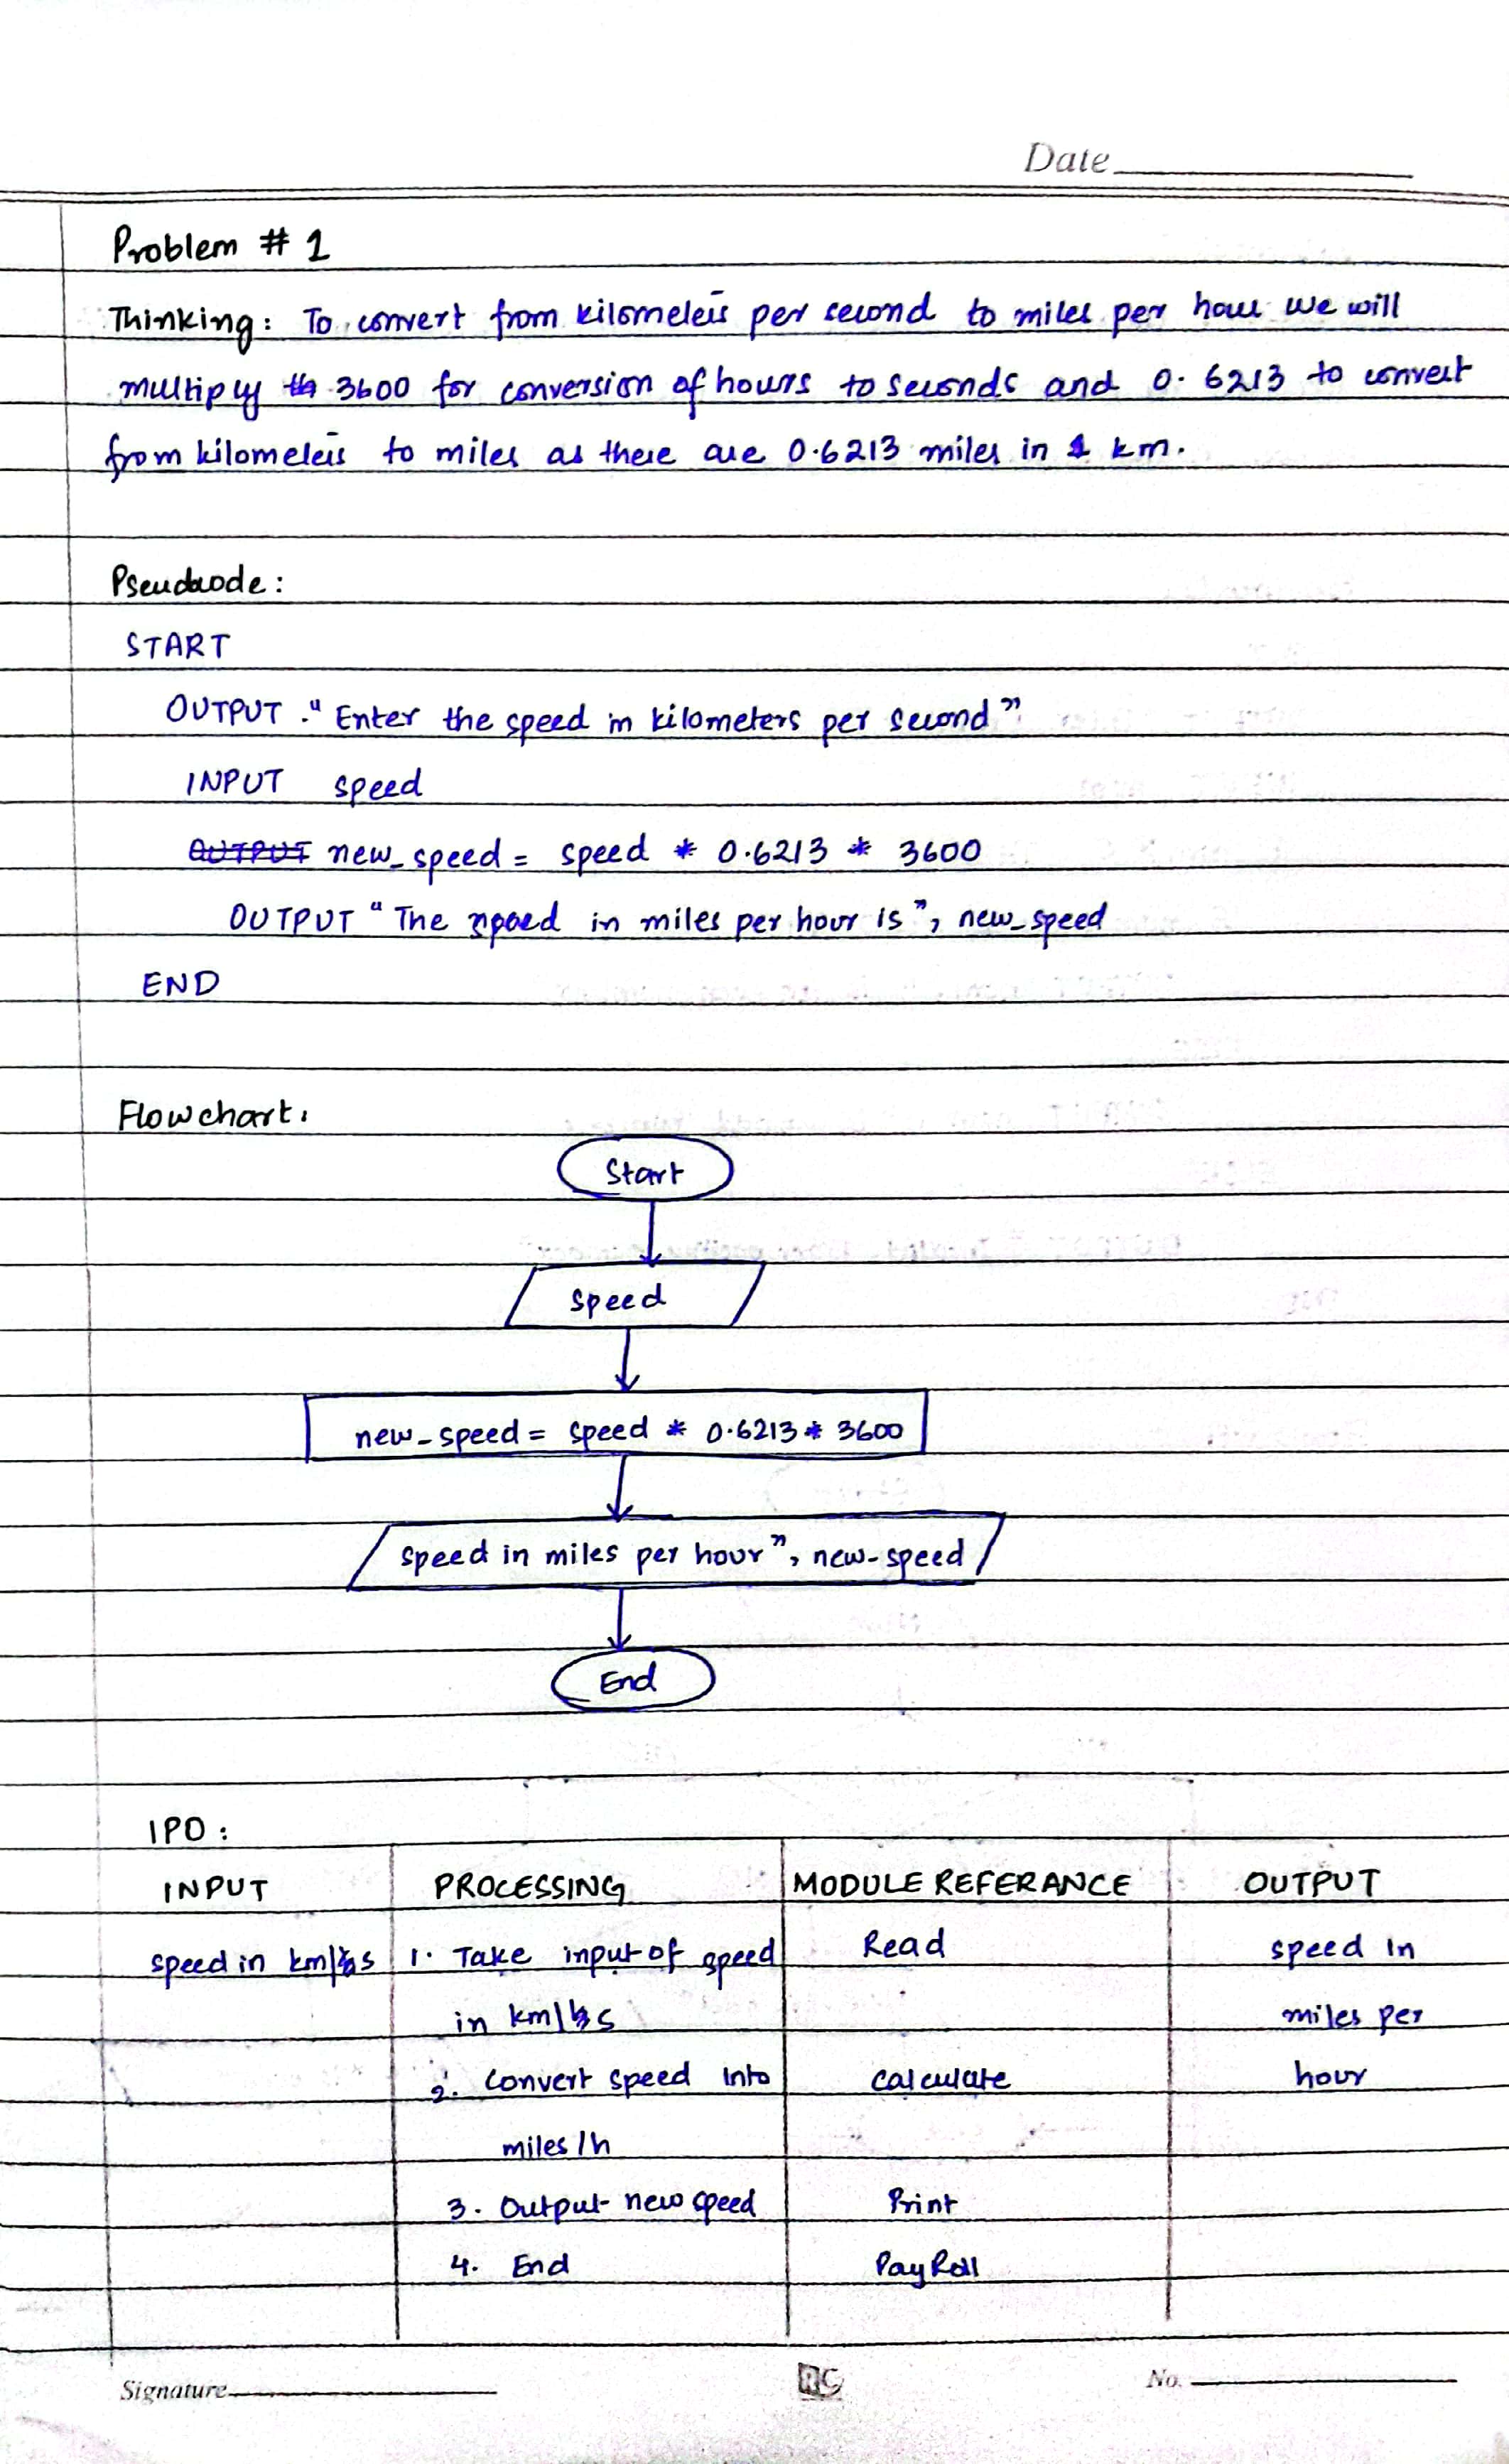 Date
Problem # 1
Thinking: To convert from kilometers per second to miles per hour we will
multiply 3600 for conversion of hours to seconds and 0.6213 to convert
from kilometers to miles as there are 0.6213 miles in 1 km.
Pseudocode:
START
OUTPUT "Enter the speed in kilometers per second"
INPUT speed
OUTPUT new_speed = speed * 0.6213 * 3600
OUTPUT "The speed in miles per hour is", new_speed
END
Flowchart:
Start
speed
new_speed = speed * 0.6213 * 3600
speed in miles per hour", new_speed
End
IPO:
INPUT PROCESSING MODULE REFERANCE OUTPUT
speed in km/s 1. Take input of speed Read speed in
in km/s miles per
2. Convert speed into calculate hour
miles/h
3. Output new speed Print
4. End PayRoll
Signature RC No.